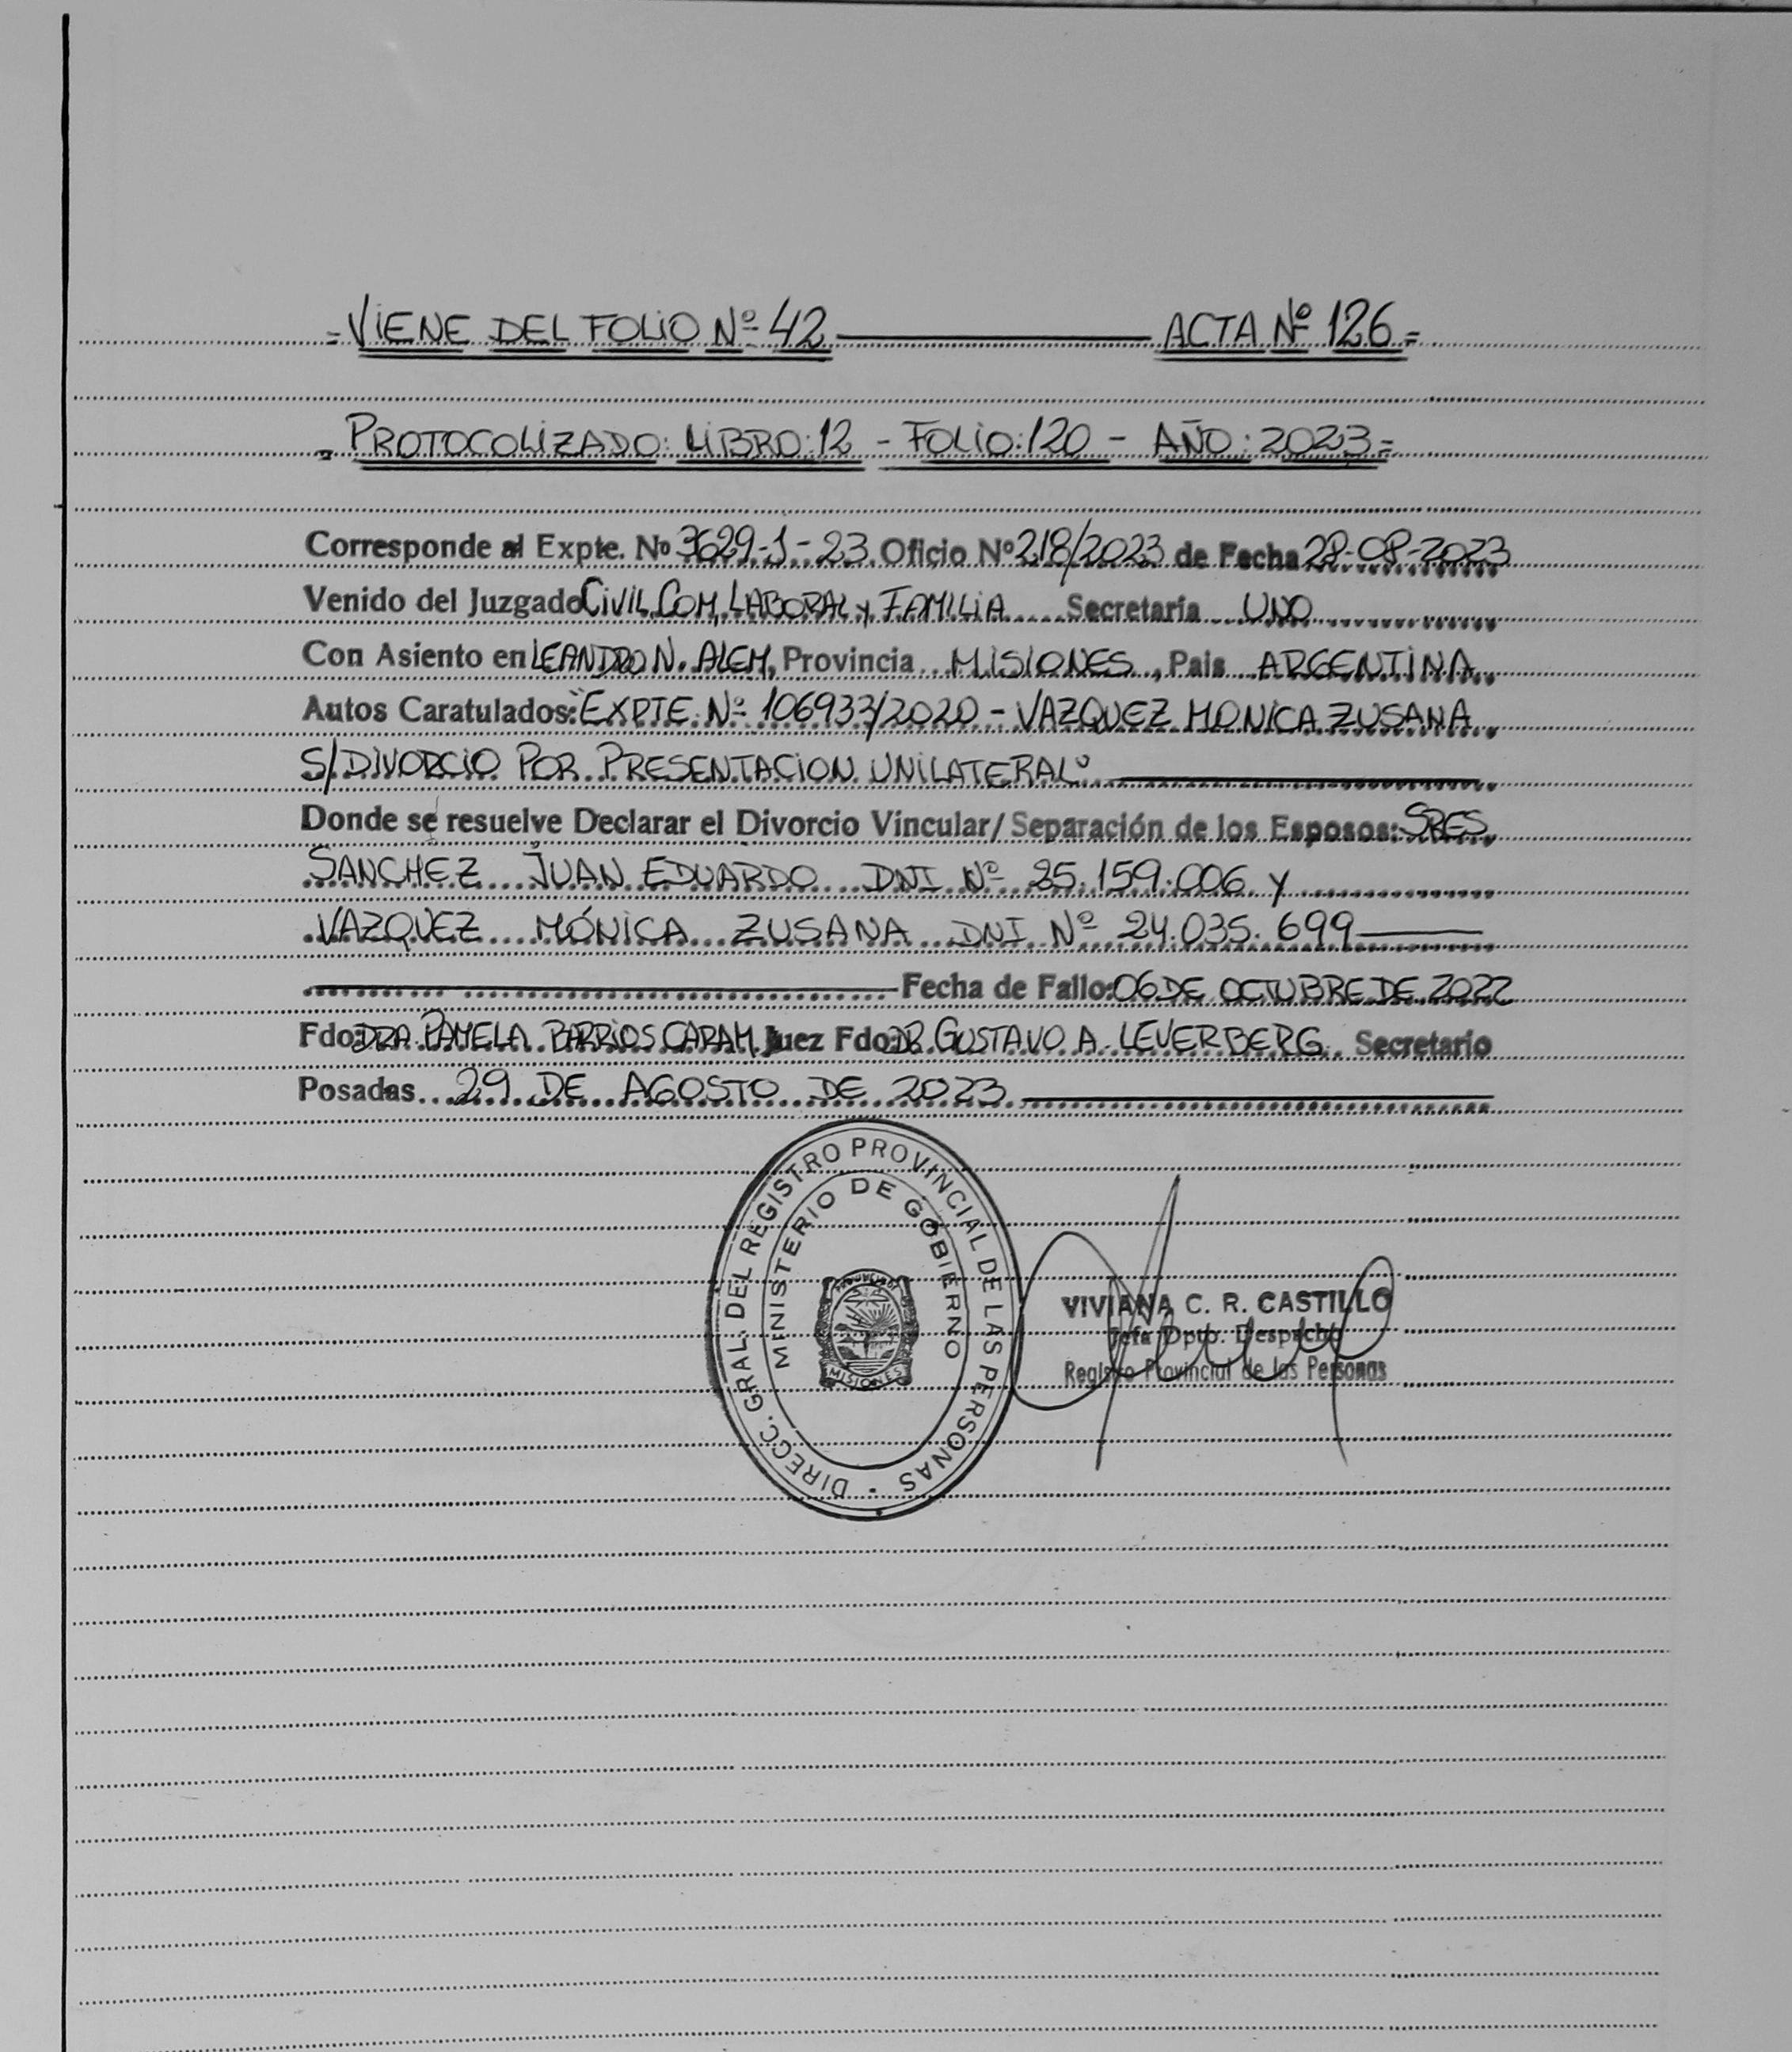 =VIENE DEL FOLIO Nº 42 ACTA Nº 126=
=PROTOCOLIZADO: LIBRO: 12 - FOLIO: 120 - AÑO: 2023=
Corresponde al Expte. Nº 3629-J-23. Oficio Nº 218/2023 de Fecha 28-08-2023
Venido del Juzgado CIVIL, COM, LABORAL y FAMILIA Secretaría UNO
Con Asiento en LEANDRO N. ALEM, Provincia MISIONES, Pais ARGENTINA
Autos Caratulados: "EXPTE. Nº 106933/2020 - VAZQUEZ MONICA ZUSANA
S/ DIVORCIO POR PRESENTACION UNILATERAL"
Donde se resuelve Declarar el Divorcio Vincular/ Separación de los Esposos: SRES
SANCHEZ JUAN EDUARDO DNI Nº 25.159.006 y
VAZQUEZ MÓNICA ZUSANA DNI Nº 24.035.699
Fecha de Fallo: 06 DE OCTUBRE DE 2022
Fdo: DRA. PAMELA BARRIOS CARAM. Juez Fdo: DR. GUSTAVO A. LEVERBERG. Secretario
Posadas 29 DE AGOSTO DE 2023
DIRECC. GRAL. DEL REGISTRO PROVINCIAL DE LAS PERSONAS
MINISTERIO DE GOBIERNO
MISIONES
VIVIANA C. R. CASTILLO
Jefa Dpto. Despacho
Registro Provincial de las Personas